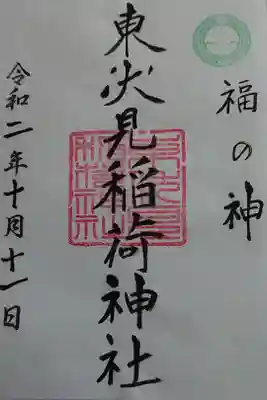 福の神
東伏見稲荷神社
令和二年十月十一日